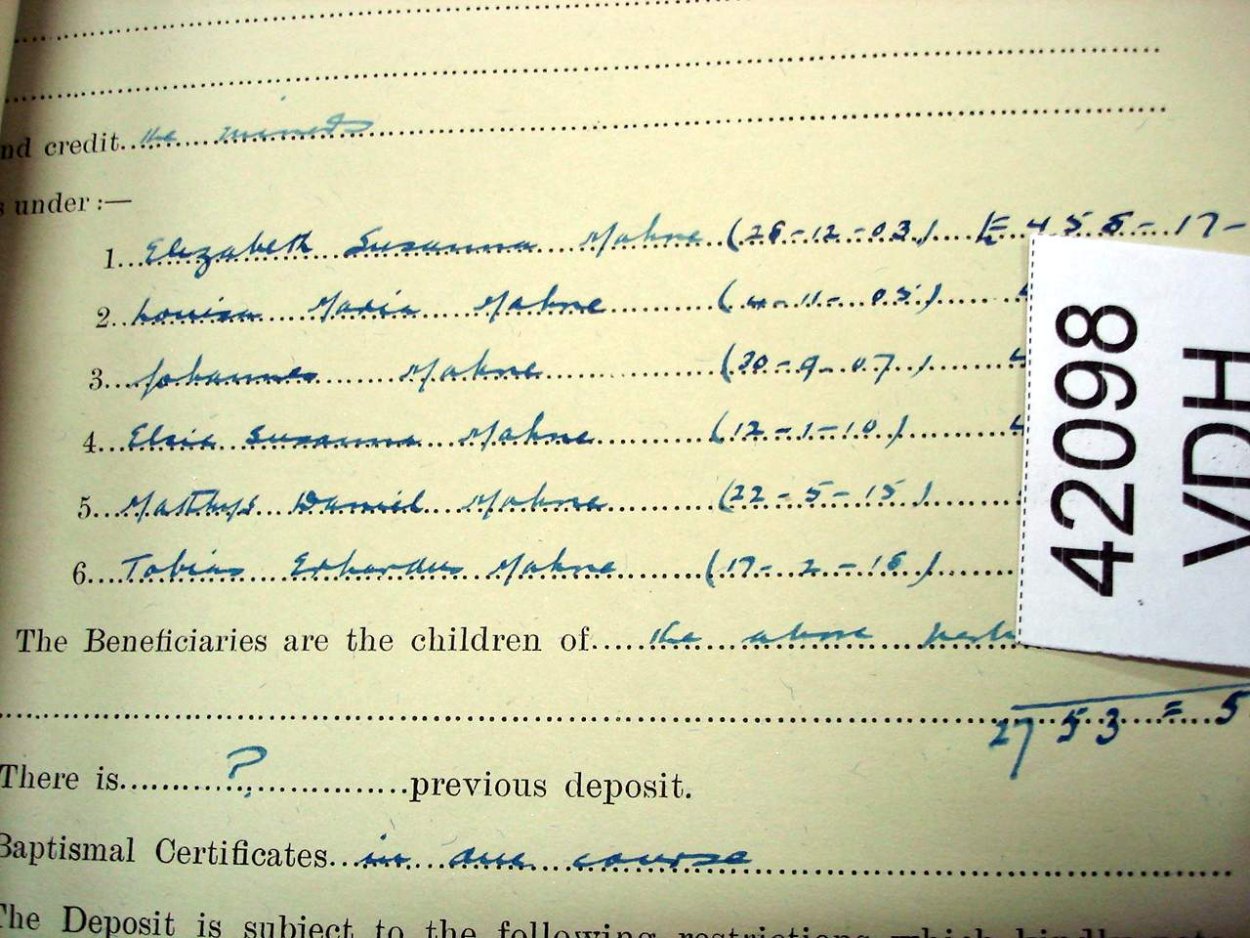 nd credit the minors
s under :—
1. Elizabeth Susanna Mahne (26-12-03) £ 458-17-
2. Louisa Maria Mahne (4-11-05)
3. Johannes Mahne (20-9-07)
4. Elsie Susanna Mahne (12-1-10)
5. Matthys Daniel Mahne (22-5-15)
6. Tobias Erhardus Mahne (17-2-18)
The Beneficiaries are the children of the above
2753 = 5
There is ? previous deposit.
Baptismal Certificates in due course
The Deposit is subject to the following restrictions which kindly note
42098
VDH